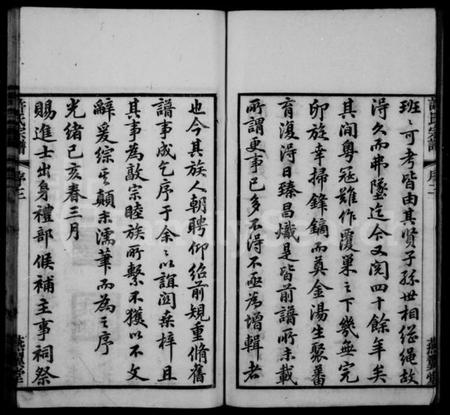 班班可考皆由其賢子孫世相繩繩故
得久而弗墜迄今又閱四十餘年矣
其間粵冠難作覆巢之下幾無完
卵族幸掃鋒鏑而奠金湯生聚蕃
育復得日臻昌熾是皆前譜所未載
所謂更事已多不得不亟為增輯者
也今其族人朝聘仰紹前規重脩舊
譜事成乞序于余余以誼關桑梓且
其事為敦宗睦族所繫不獲以不文
辭爰綜其顛末濡筆而為之序
光緒己亥春三月
賜進士出身禮部候補主事祠祭
許氏宗譜 序二
許氏宗譜 序三